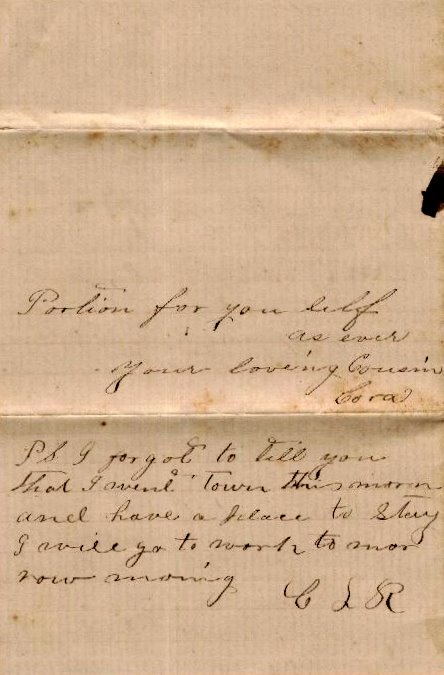 Portion for you self
as ever
your loving Cousin
Cora
PS I forgot to till you
that I went town this morn
and have a place to stay
I will go to work to mor
row moning
C L R